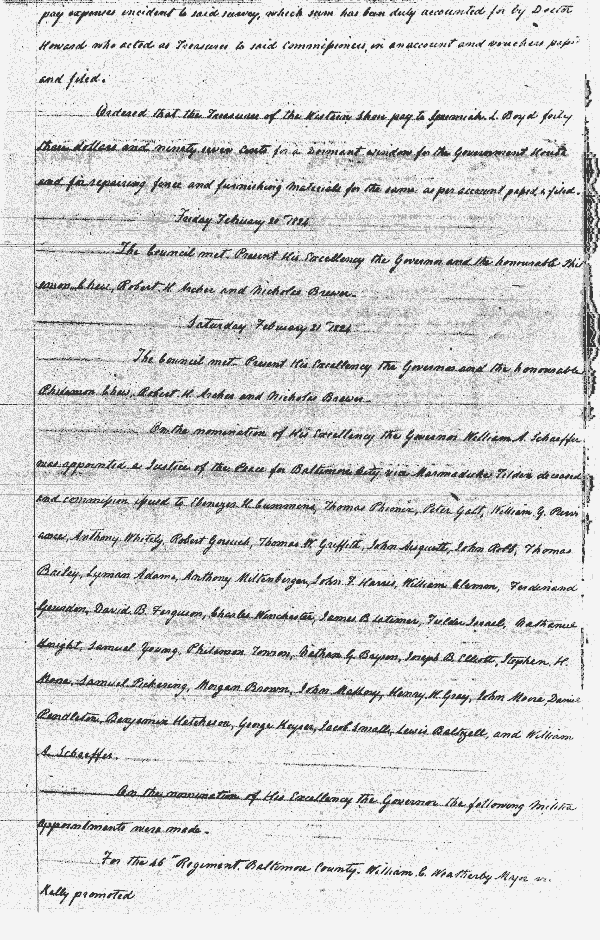 pay expenses incident to said survey, which sum has been duly accounted for by Doctor
Howard who acted as Treasurer to said Commissioners, in an account and vouchers
and filed.
Ordered that the Treasurer of the Western Shore pay to Jeremiah L. Boyd forty
three dollars and ninety seven Cents for a Dormant window for the Government House
and for repairing fence and furnishing materials for the same as per account passed & filed.
Friday February 20th 1824
The Council met. Present His Excellency the Governor and the honourable Phi
lemon Chew, Robert H. Archer and Nicholas Brewer.
Saturday February 21st 1824
The Council met. Present His Excellency the Governor and the honourable
Philemon Chew, Robert H. Archer and Nicholas Brewer.
On the nomination of His Excellency the Governor William A. Schaeffer
was appointed a Justice of the Peace for Baltimore City vice Marmaduke Tilden deceased
and commission issued to Ebenezer H. Cummins, Thomas Phenix, Peter Galt, William G.
Anthony Whitely, Robert Gorsuch, Thomas W. Griffith, John Aisquith, John Robb, Thomas
Bailey, Lyman Adams, Anthony Miltenberger, John F. Harris, William Clemm, Ferdinand
Gourdon, David B. Ferguson, Charles Winchester, James B. Latimer, Fielder Israel, Nathaniel
Knight, Samuel Young, Philemon Towson, Nathan G. Bryson, Joseph B. Elliott, Stephen H.
Moore, Samuel Pickering, Morgan Brown, John Mallory, Henry W. Gray, John Moore Daniel
Pendleton, Benjamin Hutcheson, George Keyser, Jacob Small, Lewis Baltzell, and William
A. Schaeffer.
On the nomination of His Excellency the Governor the following Militia
appointments were made.
For the 46th Regiment Baltimore County. William C. Weatherby Major
Kelly promoted